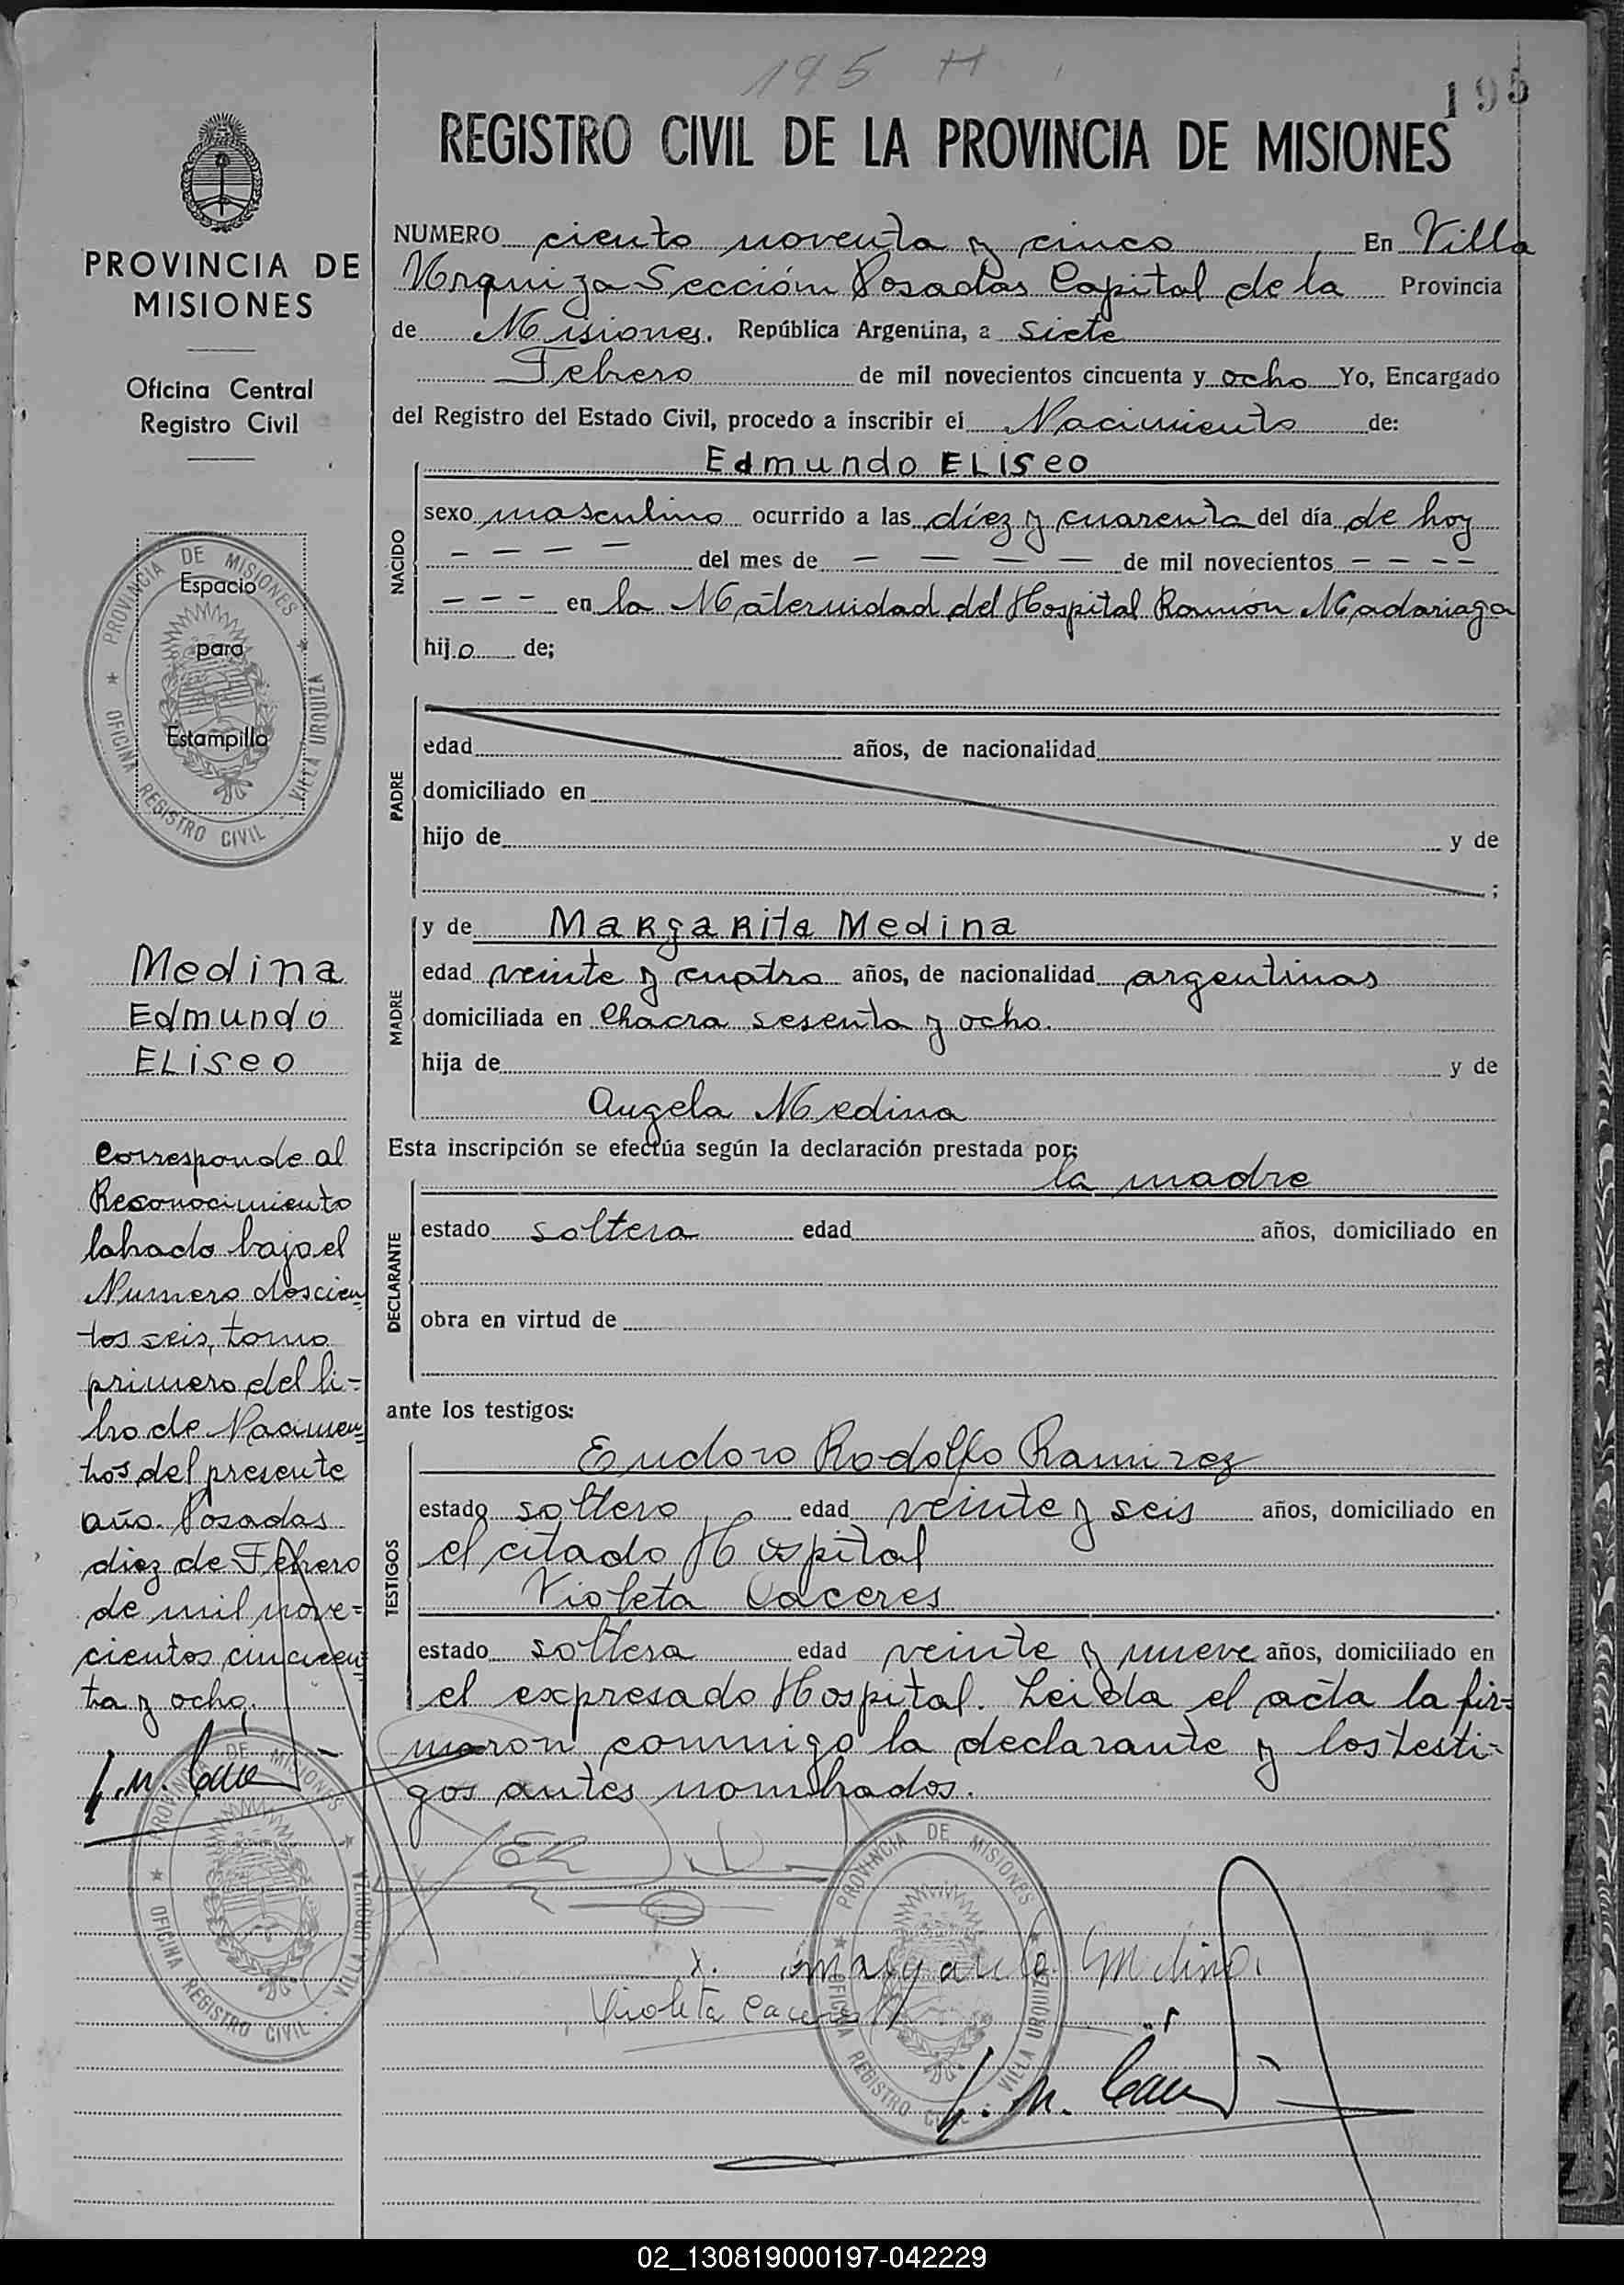 195 H
195
REGISTRO CIVIL DE LA PROVINCIA DE MISIONES
PROVINCIA DE
MISIONES
Oficina Central
Registro Civil
PROVINCIA DE MISIONES
Espacio
para
Estampilla
OFICINA REGISTRO CIVIL VILLA URQUIZA
Medina
Edmundo
ELiseo
Corresponde al
Reconocimiento
labrado bajo el
Numero doscien
tos seis, tomo
primero del li-
bro de Nacimien
tos del presente
año. Posadas
diez de Febrero
de mil nove-
cientos cincuen
ta y ocho.
PROVINCIA DE MISIONES
OFICINA REGISTRO CIVIL VILLA URQUIZA
NUMERO ciento noventa y cinco En Villa
Urquiza Sección Posadas Capital de la Provincia
de Misiones. República Argentina, a siete
Febrero de mil novecientos cincuenta y ocho Yo, Encargado
del Registro del Estado Civil, procedo a inscribir el Nacimiento de:
NACIDO
Edmundo ELiseo
sexo masculino ocurrido a las diez y cuarenta del día de hoy
- - - - del mes de - - - - de mil novecientos - - - -
- - - en la Maternidad del Hospital Ramón Madariaga
hijo de;
PADRE
edad años, de nacionalidad
domiciliado en
hijo de y de
;
MADRE
y de Margarita Medina
edad veinte y cuatro años, de nacionalidad argentinas
domiciliada en Chacra sesenta y ocho.
hija de y de
Angela Medina
Esta inscripción se efectúa según la declaración prestada por:
DECLARANTE
la madre
estado soltera edad años, domiciliado en
obra en virtud de
ante los testigos:
TESTIGOS
Eudoro Rodolfo Ramirez
estado soltero edad veinte y seis años, domiciliado en
el citado Hospital
Violeta Caceres
estado soltera edad veinte y nueve años, domiciliado en
el expresado Hospital. Leida el acta la fir-
maron conmigo la declarante y los testi-
gos antes nombrados.
PROVINCIA DE MISIONES
OFICINA REGISTRO CIVIL VILLA URQUIZA
x. Margarita Medina.
Violeta Caceres
02_130819000197-042229